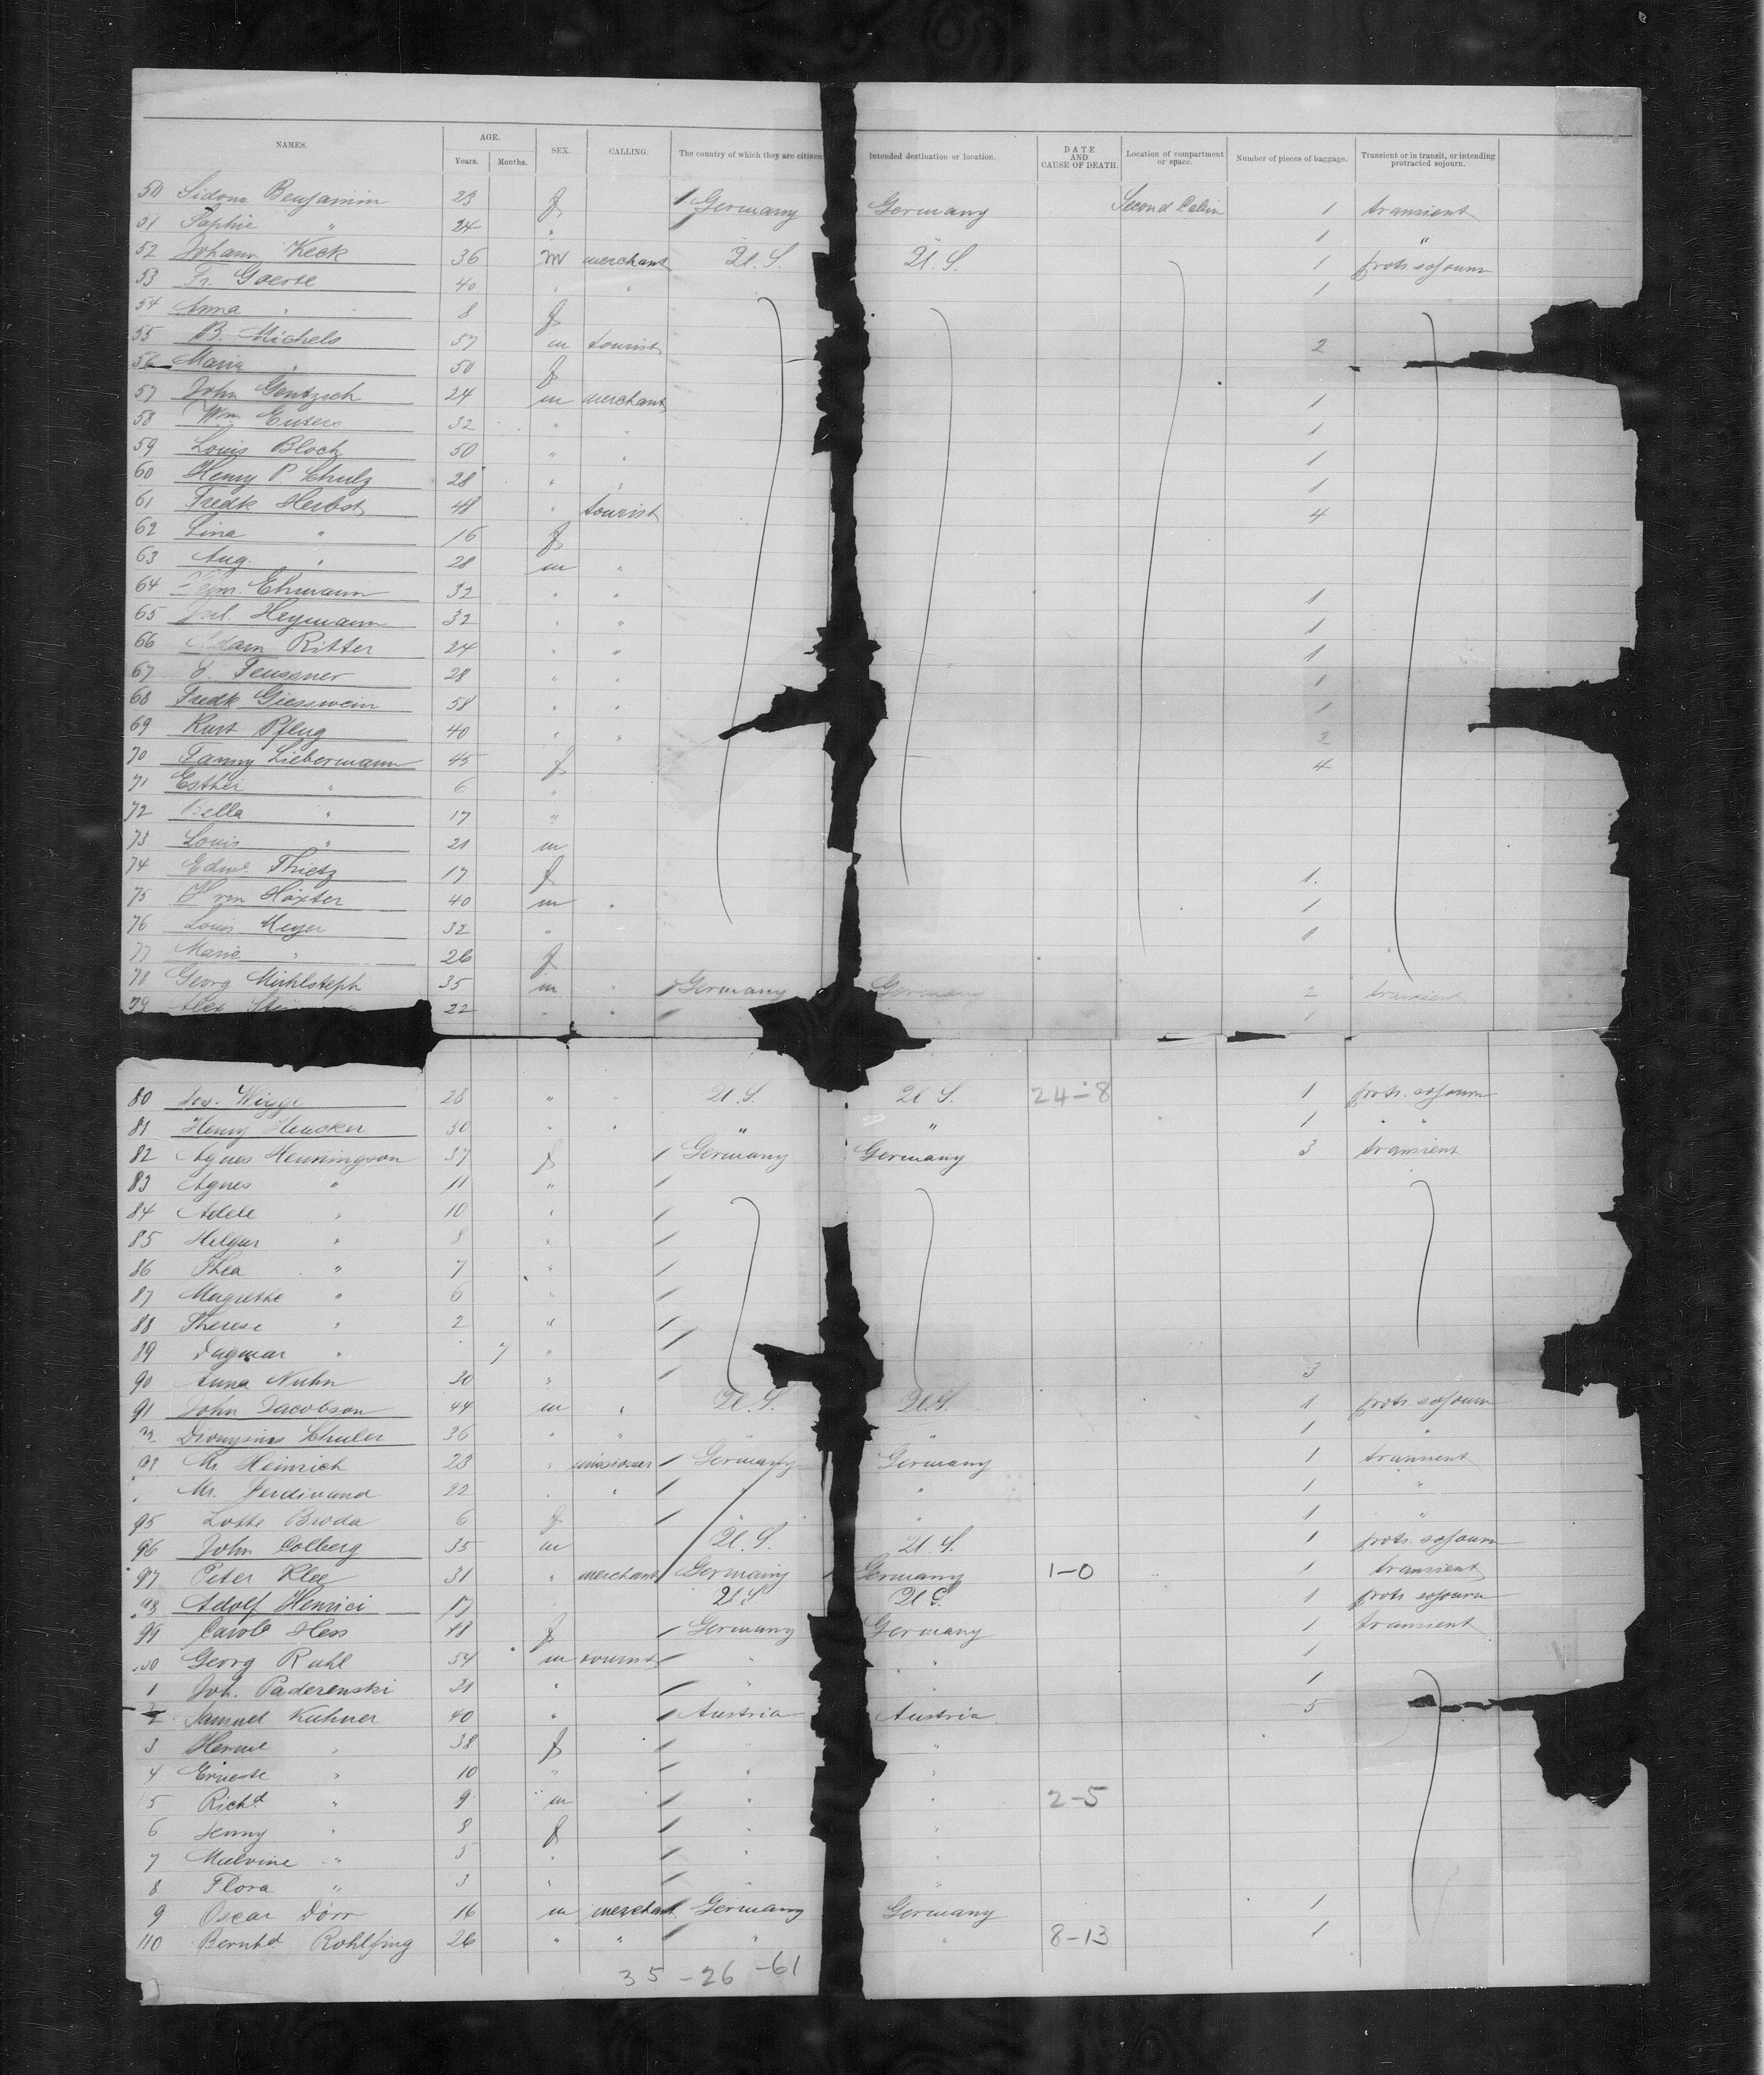 NAMES. AGE. Years. Months. SEX. CALLING. The country of which they are citizen Intended destination or location. DATE AND CAUSE OF DEATH. Location of compartment or space. Number of pieces of baggage. Transient or in transit, or intending protracted sojourn.
50 Sidone Benjamin 23 f Germany Germany Second Cabin 1 transient
51 Sophie " 24 " 1 "
52 Johann Keck 36 m merchant U.S. U.S. 1 protr. sojourn
53 Fr. Goerse 40 " " 1
54 Anna " 8 f
55 B. Michels 57 m tourist 2
56 Marie " 50 f
57 John Gentzsch 24 m merchant 1
58 Wm Eusers 32 " " 1
59 Louis Bloch 50 " " 1
60 Henry P Schulz 28 " " 1
61 Fredk Herbst 48 " tourist 4
62 Lina " 16 f
63 Aug. " 28 m "
64 Ehmann 32 " " 1
65 Jul. Heymann 32 " " 1
66 Adam Ritter 24 " " 1
67 Feussner 28 " " 1
68 Fredk Giesswein 58 " " 1
69 Kurt Pflug 40 " " 2
70 Fanny Liebermann 45 f 4
71 Esther " 6 "
72 Bella " 17 "
73 Louis " 21 m
74 Thietz 17 f 1.
75 Höxter 40 m " 1
76 Louis Meyer 32 " 1
77 Marie " 26 f
78 Georg Mühlsteph 35 m " Germany Germany 2 transient
79 Alex 22 " "
80 Jos. Wigge 28 " " U.S. U.S. 24-8 1 protr. sojourn
81 Henry Heucker 50 " " " " 1 " "
82 Agnes Henningson 37 f Germany Germany 3 transient
83 Agnes " 11 "
84 Adele " 10 "
85 Helgar " 8 "
86 Thea " 7 "
87 Magrethe " 6 "
88 Therese " 2 "
89 Dagmar " 7 "
90 Anna Nuhn 30 " 3
91 John Jacobson 44 m " U.S. U.S. 1 protr. sojourn
Dionysius Schuler 36 " " " " 1 "
Mr. Heinrich 23 " missioner Germany Germany 1 transient
Mr. Ferdinand 22 " " " " 1 "
95 Lotte Broda 6 f " " 1 "
96 John Colberg 35 m U.S. U.S. 1 protr. sojourn
97 Peter Klee 31 " merchant Germany Germany 1-0 1 transient
Adolf Henrici 17 U.S. U.S. 1 protr. sojourn
99 Carole Hess 18 f Germany Germany 1 transient
Georg Ruhl 54 m tourist " " 1
1 Joh. Paderenski 31 " " " 1
2 Samuel Kuhner 40 " Austria Austria 5
3 Hermé " 38 f " "
4 Erneste " 10 " " "
5 Richd " 9 m " " 2-5
6 Jenny " 8 f " "
7 Malvine " 5 " " "
8 Flora " 3 " " "
9 Oscar Dörr 16 m merchant Germany Germany 1
110 Bernhd Rohlfing 26 " " " " 8-13 1
35 - 26 - 61